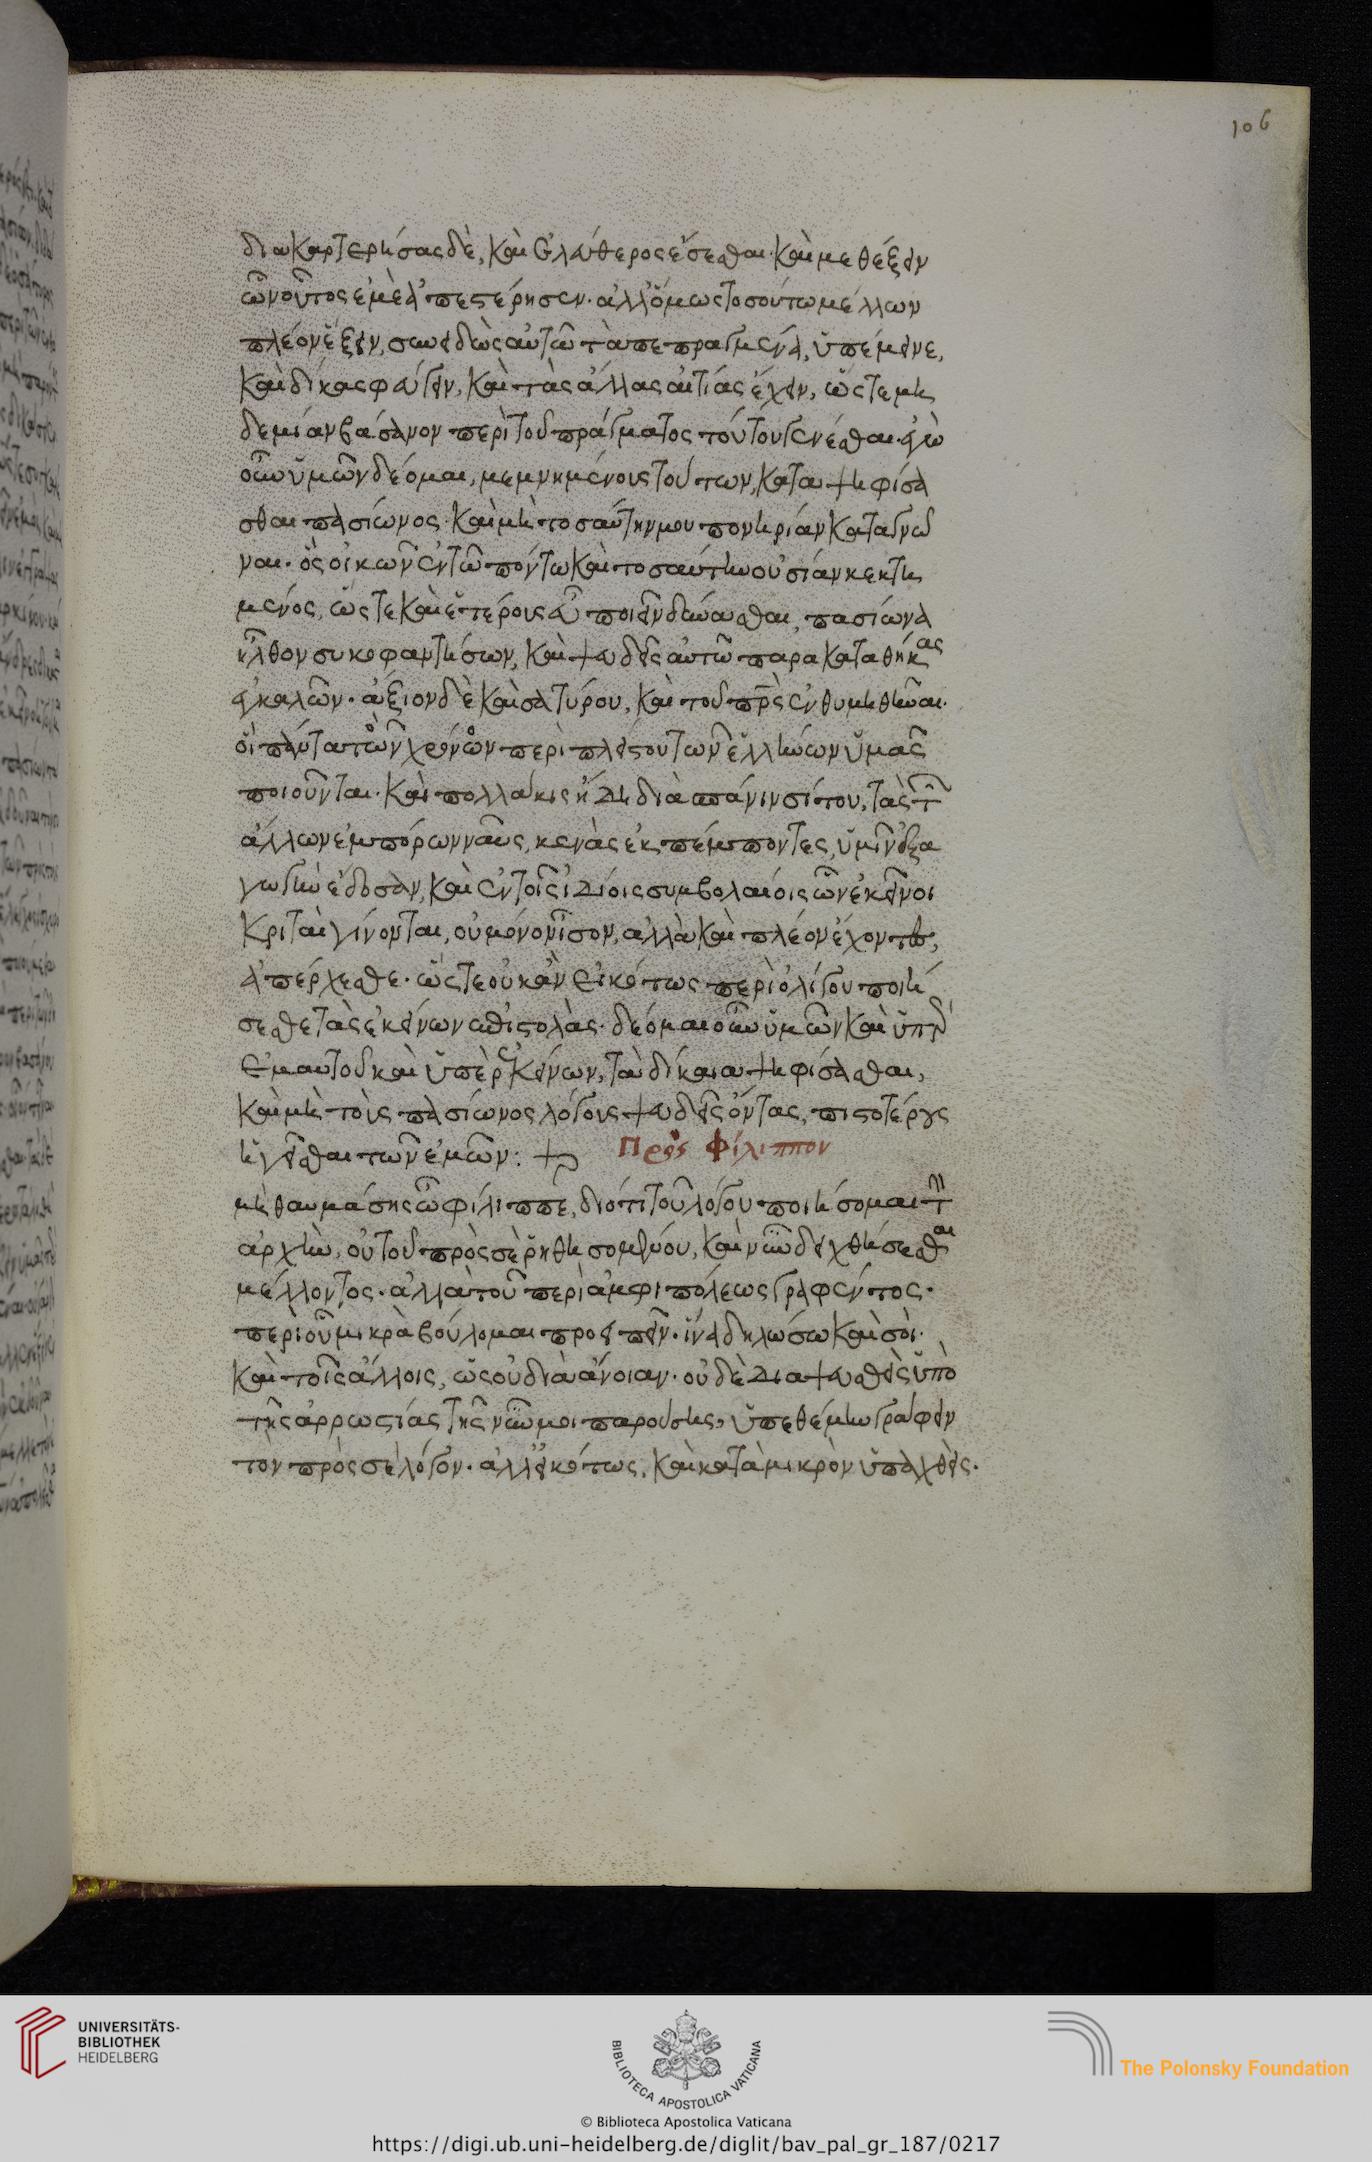 106
διακαρτερήσας δὲ, καὶ ἐλεύθερος ἔσεσθαι. καὶ μεθέξειν
ὧν οὗτος ἐμὲ ἀπεστέρησεν. ἀλλ' ὅμως τοσούτω μέλλων
πλέον ἕξειν, συνειδὼς αὐτῶ τὰ πεπραγμένα, ὑπέμεινε,
καὶ δίκας φεύγειν, καὶ τὰς ἄλλας αἰτίας ἔχειν, ὥστε μη
δεμίαν βάσανον περὶ τοῦ πράγματος τούτου γενέσθαι. ἐγὼ
οὖν ὑμῶν δέομαι, μεμνημένους τούτων, καταψηφίσα
σθαι πασίωνος. καὶ μὴ τοσαύτην μου πονηρίαν καταγνῶ
ναι. ὃς οἰκῶν ἐν τῶ πόντω καὶ τοσαύτην οὐσίαν κεκτη
μένος, ὥστε καὶ ἑτέρους εὖ ποιεῖν δύνασθαι, πασίωνα
ἦλθον συκοφαντήσων, καὶ ψευδεῖς αὐτῶ παρακαταθήκας
ἐγκαλῶν. ἄξιον δὲ καὶ σατύρου, καὶ τοῦ πρς ἐνθυμηθῆναι.
οἳ πάντα τὸν χρόνον περὶ πλείστου τῶν ἑλλήνων ὑμᾶς
ποιοῦνται. καὶ πολλάκις ἤδη διὰ σπάνιν σίτου, τὰς τῶν
ἄλλων ἐμπόρων ναῦς, κενὰς ἐκπέμποντες, ὑμῖν ἐξα
γωγὴν ἔδοσαν, καὶ ἐν τοῖς ἰδίοις συμβολαίοις ὧν ἐκεῖνοι
κριταὶ γίνονται, οὐ μόνον ἴσον, ἀλλὰ καὶ πλέον ἔχοντες,
ἀπέρχεσθε. ὥστε οὐκ ἂν εἰκότως περὶ ὀλίγου ποιή
σεσθε τὰς ἐκείνων ἐπιστολὰς. δέομαι οὖν ὑμῶν καὶ ὑπὲρ
ἐμαυτοῦ καὶ ὑπὲρ ἐκείνων, τὰ δίκαια ψηφίσασθαι,
καὶ μὴ τοὺς πασίωνος λόγους ψευδεῖς ὄντας, πιστοτέρους
ἡγεῖσθαι τῶν ἐμῶν:
Πρὸς Φίλιππον
μὴ θαυμάσης ὦ φίλιππε, διότι τοῦ λόγου ποιήσομαι τὴν
ἀρχὴν, οὐ τοῦ πρὸς σὲ ῥηθησομένου, καὶ νῦν δειχθήσεσθαι
μέλλοντος. ἀλλὰ τοῦ περὶ ἀμφιπόλεως γραφέντος.
περὶ οὗ μικρὰ βούλομαι προειπεῖν. ἵνα δηλώσω καὶ σοὶ.
καὶ τοῖς ἄλλοις, ὡς οὐ διὰ ἄνοιαν. οὐδὲ διαψευσθεὶς ὑπὸ
τῆς ἀρρωστίας τῆς νῦν μοι παρούσης, ὑπεθέμην γράφειν
τὸν πρὸς σὲ λόγον. ἀλλ' εἰκότως, καὶ κατὰ μικρὸν ὑπαχθεὶς.
UNIVERSITÄTS-
BIBLIOTHEK
HEIDELBERG
BIBLIOTECA APOSTOLICA VATICANA
The Polonsky Foundation
© Biblioteca Apostolica Vaticana
https://digi.ub.uni-heidelberg.de/diglit/bav_pal_gr_187/0217